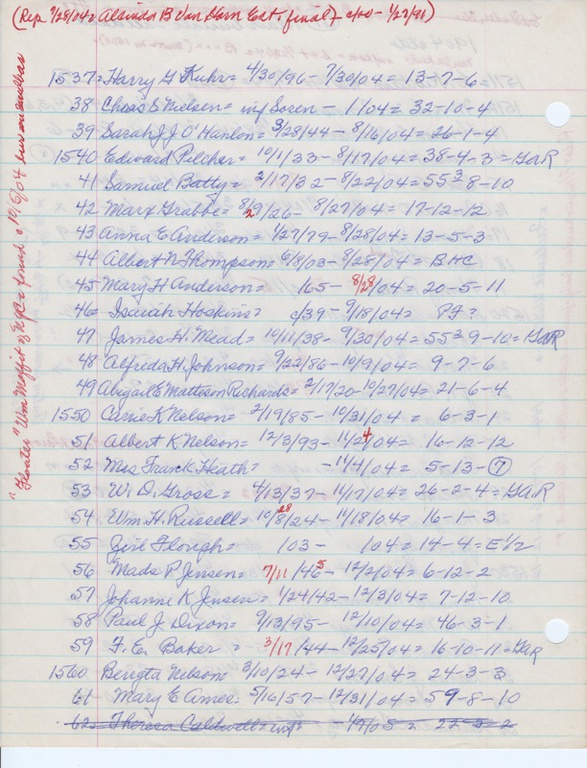 (Rep 7/28/04 = Alsinda B Van Horn Est. final - c/00 - 1/27/91)
1537 = Harry G Kuhr = 4/30/96 - 7/30/04 = 13-7-6
38 Chas S Nielsen = inf Soren - 1/04 = 32-10-4
39 Sarah J J O'Hanlon = 3/28/44 - 8/16/04 = 26-1-4
1540 Edward Pilcher = 10/1/33 - 8/17/04 = 38-4-3 = GAR
41 Samuel Batty = 2/17/32 - 8/22/04 = 55 3/2 8-10
42 Marx Grabbe = 8/9/26 - 8/27/04 = 17-12-12
43 Anna E Anderson = 1/27/79 - 8/28/04 = 13-5-3
44 Albert N Thompson = 6/8/03 - 8/28/04 = BHC
45 Mary H Anderson = 165 - 8/28/04 = 20-5-11
46 Isaiah Hoskins = c/39 - 9/18/04 = PF?
47 James H. Mead = 10/11/38 - 9/30/04 = 55 3/2 9-10 = GAR
48 Alfreda H. Johnson = 9/22/86 - 10/9/04 = 9-7-6
49 Abigail E Mattison Richards = 2/17/20 - 10/27/04 = 21-6-4
1550 Carrie K Nelson = 2/19/85 - 10/31/04 = 6-3-1
51 Albert K Nelson = 12/3/93 - 11/2/04 = 16-12-12
52 Mrs Franck Heath = - 11/4/04 = 5-13-7
53 W. D. Gross = 4/13/37 - 11/17/04 = 26-2-4 = GAR
54 Wm H. Russell = 10/8/24 - 11/18/04 = 16-1-3
55 Girl Flough = 103 - 104 = 14-4 = E1/2
56 Mads P Jensen = 7/11/46 5 - 12/2/04 = 6-12-2
57 Johanne K Jensen = 1/24/42 - 12/3/04 = 7-12-10
58 Paul J. Dixon = 9/13/95 - 12/10/04 = 46-3-1
59 F. E. Baker = 3/17/44 - 12/25/04 = 16-10-11 = GAR
1560 Bengta Nelson 3/10/24 - 12/27/04 = 24-3-3
61 Mary E Ames = 5/16/57 - 12/31/04 = 59-8-10
62 = Theresa Caldwell = inf = - 1/9/05 = 22-3-2
"Floater" Wm Moffit of NYC = found c 1916/04